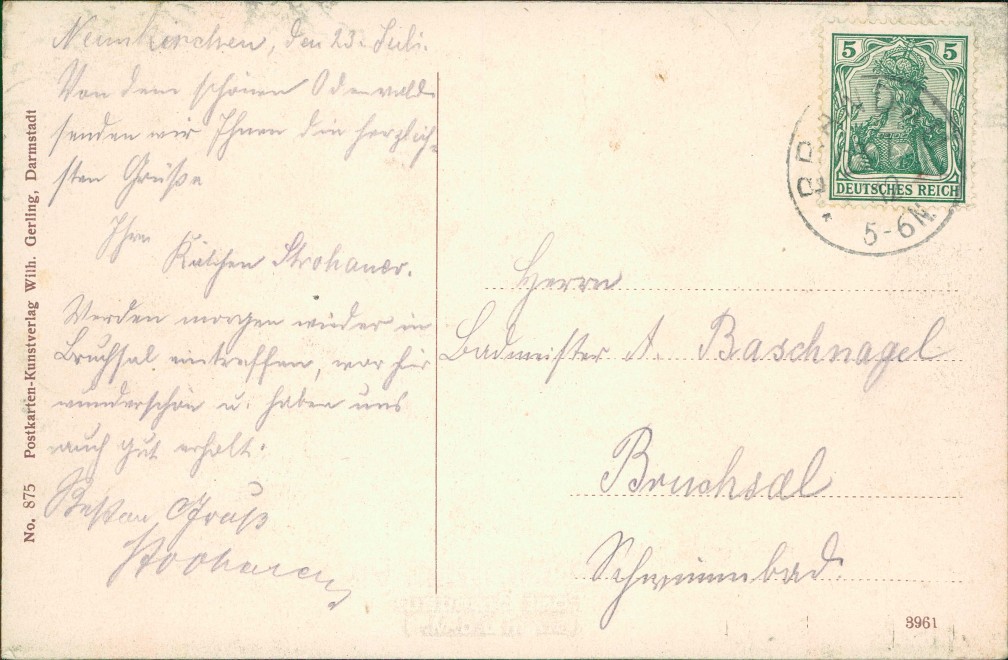 Neunkirchen, den 23. Juli.
Von dem schönen Odenwald
senden wir Ihnen die herzlich-
sten Grüße
Ihre
Kätchen Strohauer.
Werden morgen wieder in
Bruchsal eintreffen, war hier
wunderschön u. haben uns
auch gut erholt.
Besten Gruß
Strohauer
No. 875 Postkarten-Kunstverlag Wilh. Gerling, Darmstadt
5 5
DEUTSCHES REICH
5-6N
Herrn
Bademeister A. Baschnagel
Bruchsal
Schwimmbad
3961